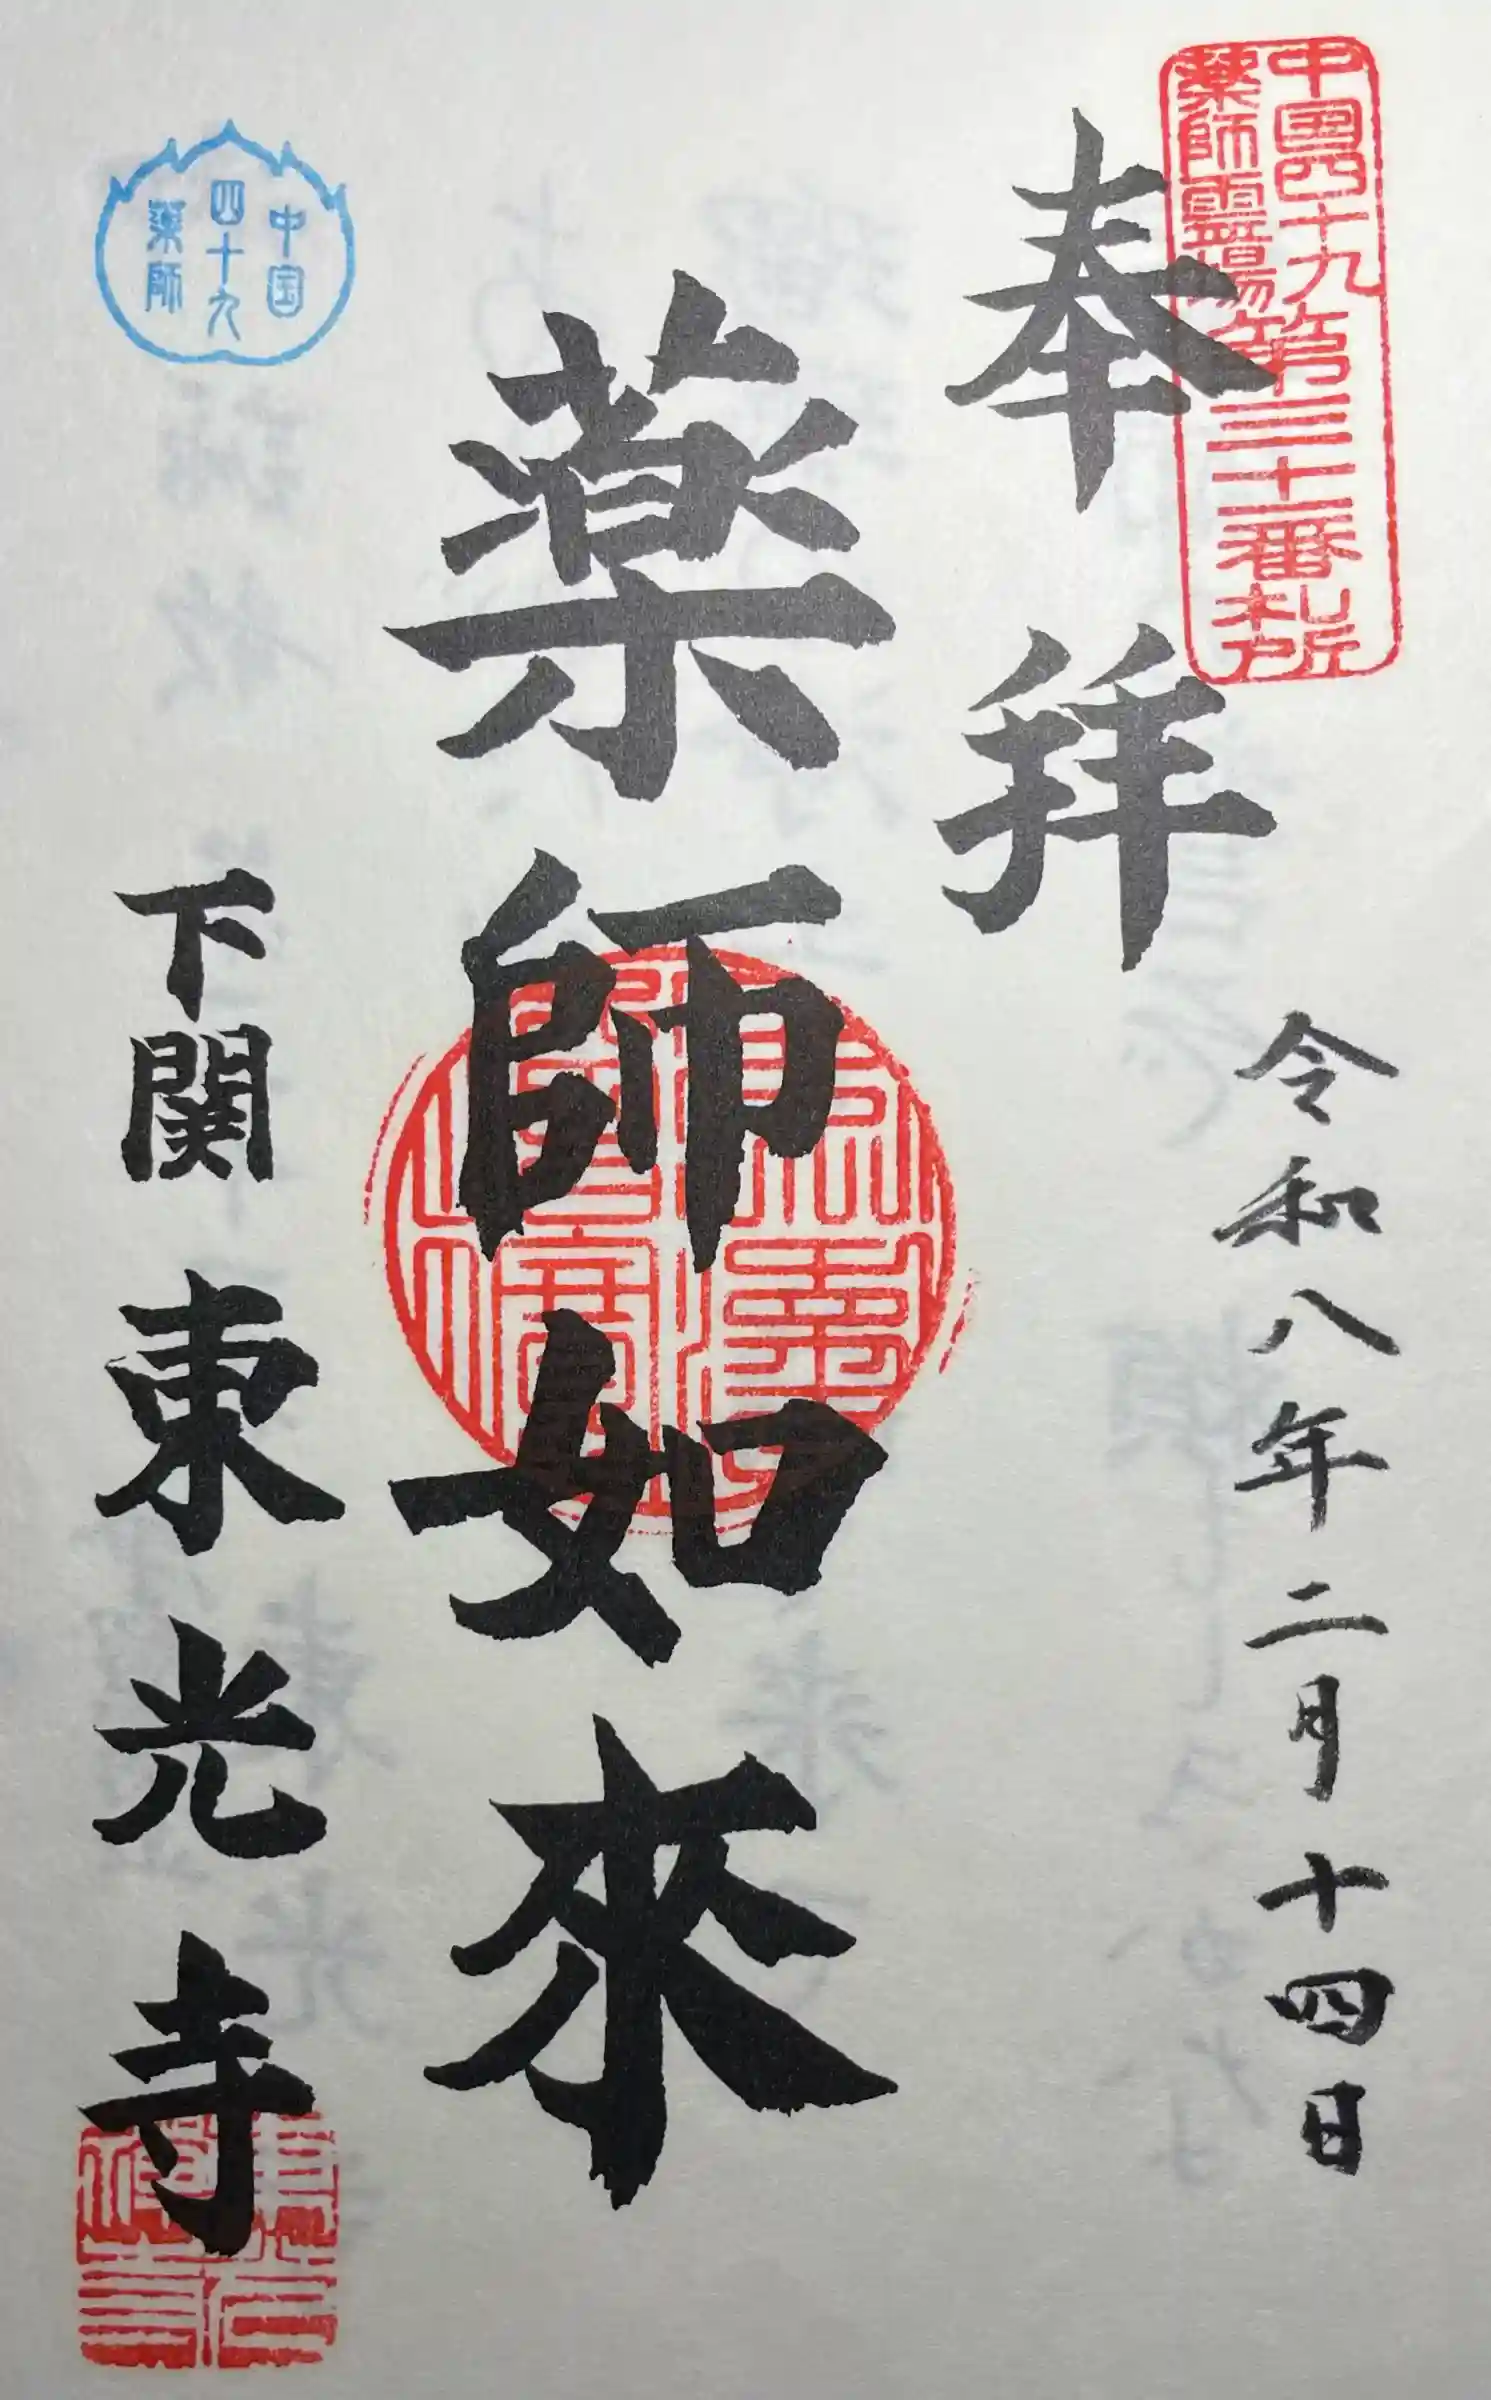 中国四十九
薬師霊場
第三十一番札所
奉拝
令和八年二月十四日
薬師如來
中国
四十九
薬師
下関
東光寺
東光
禅寺